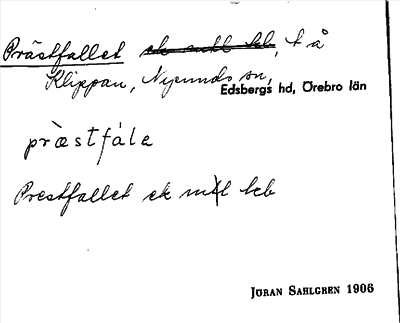 Prästfallet ek mtl kb, t å
Klippan, Nysunds sn,
Edsbergs hd, Örebro län
præ̀stfála
Prestfallet ek mtl kb
JÖRAN SAHLGREN 1906